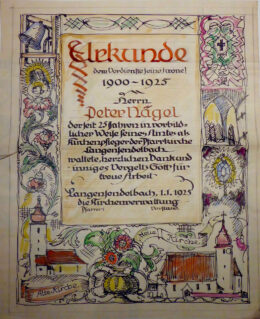 Urkunde
dem Verdienste seine Krone!
1900-1925
Herrn
Peter Nagel
der seit 25 Jahren in vorbild-
licher Weise seines Amtes als
Kirchenpfleger der Pfarrkirche
Langensendelbach
waltete, herzlichen Dank und
inniges Vergelts Gott für
treue Arbeit!
Langensendelbach, 1.1.1925
die Kirchenverwaltung
Pfarrer
Alte Kirche
Neue Kirche